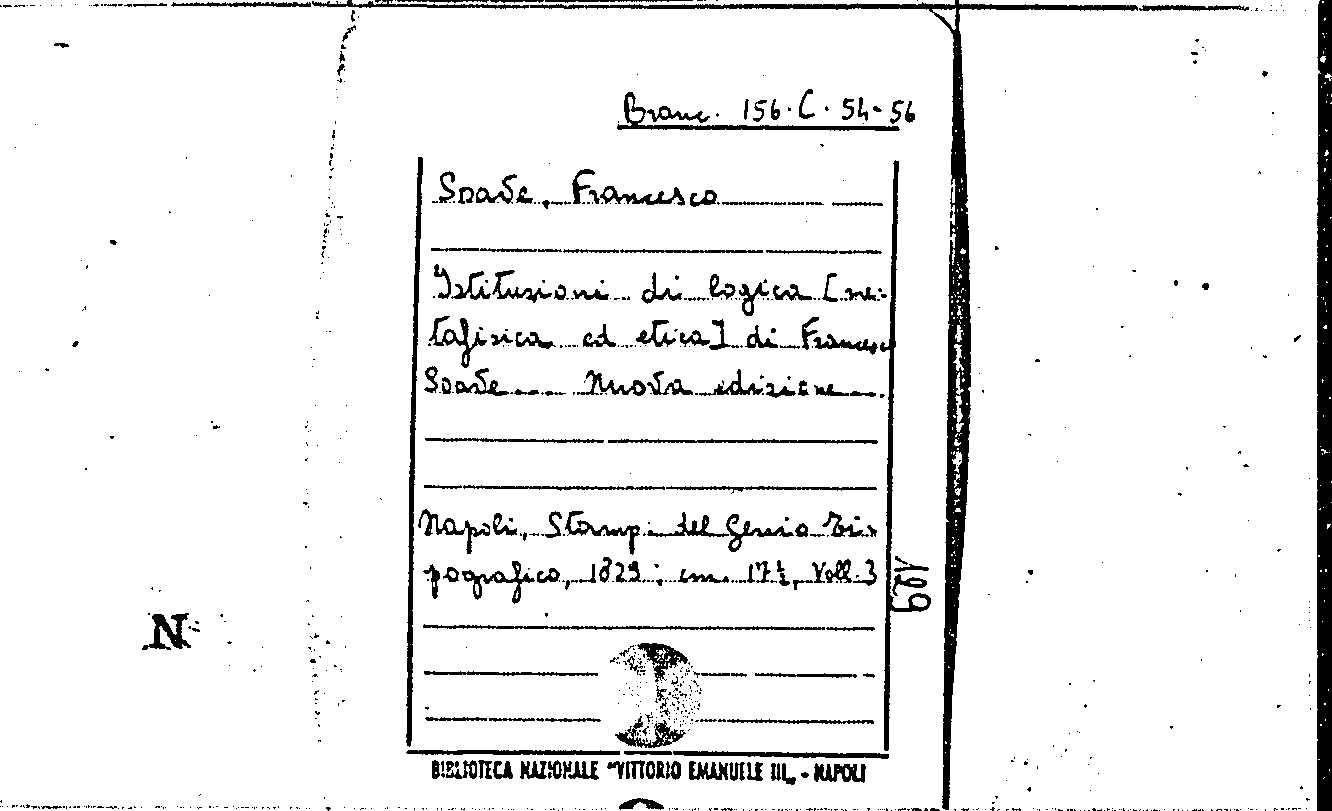 Branc. 156. C. 54-56
Soave, Francesco
Istituzioni di logica [me-
tafisica ed etica] di Francesco
Soave ... Nuova edizione ....
Napoli, Stamp. del Genio Ti-
pografico, 1829; cm. 17½, Voll. 3
N
BIBLIOTECA NAZIONALE "VITTORIO EMANUELE III„ - NAPOLI